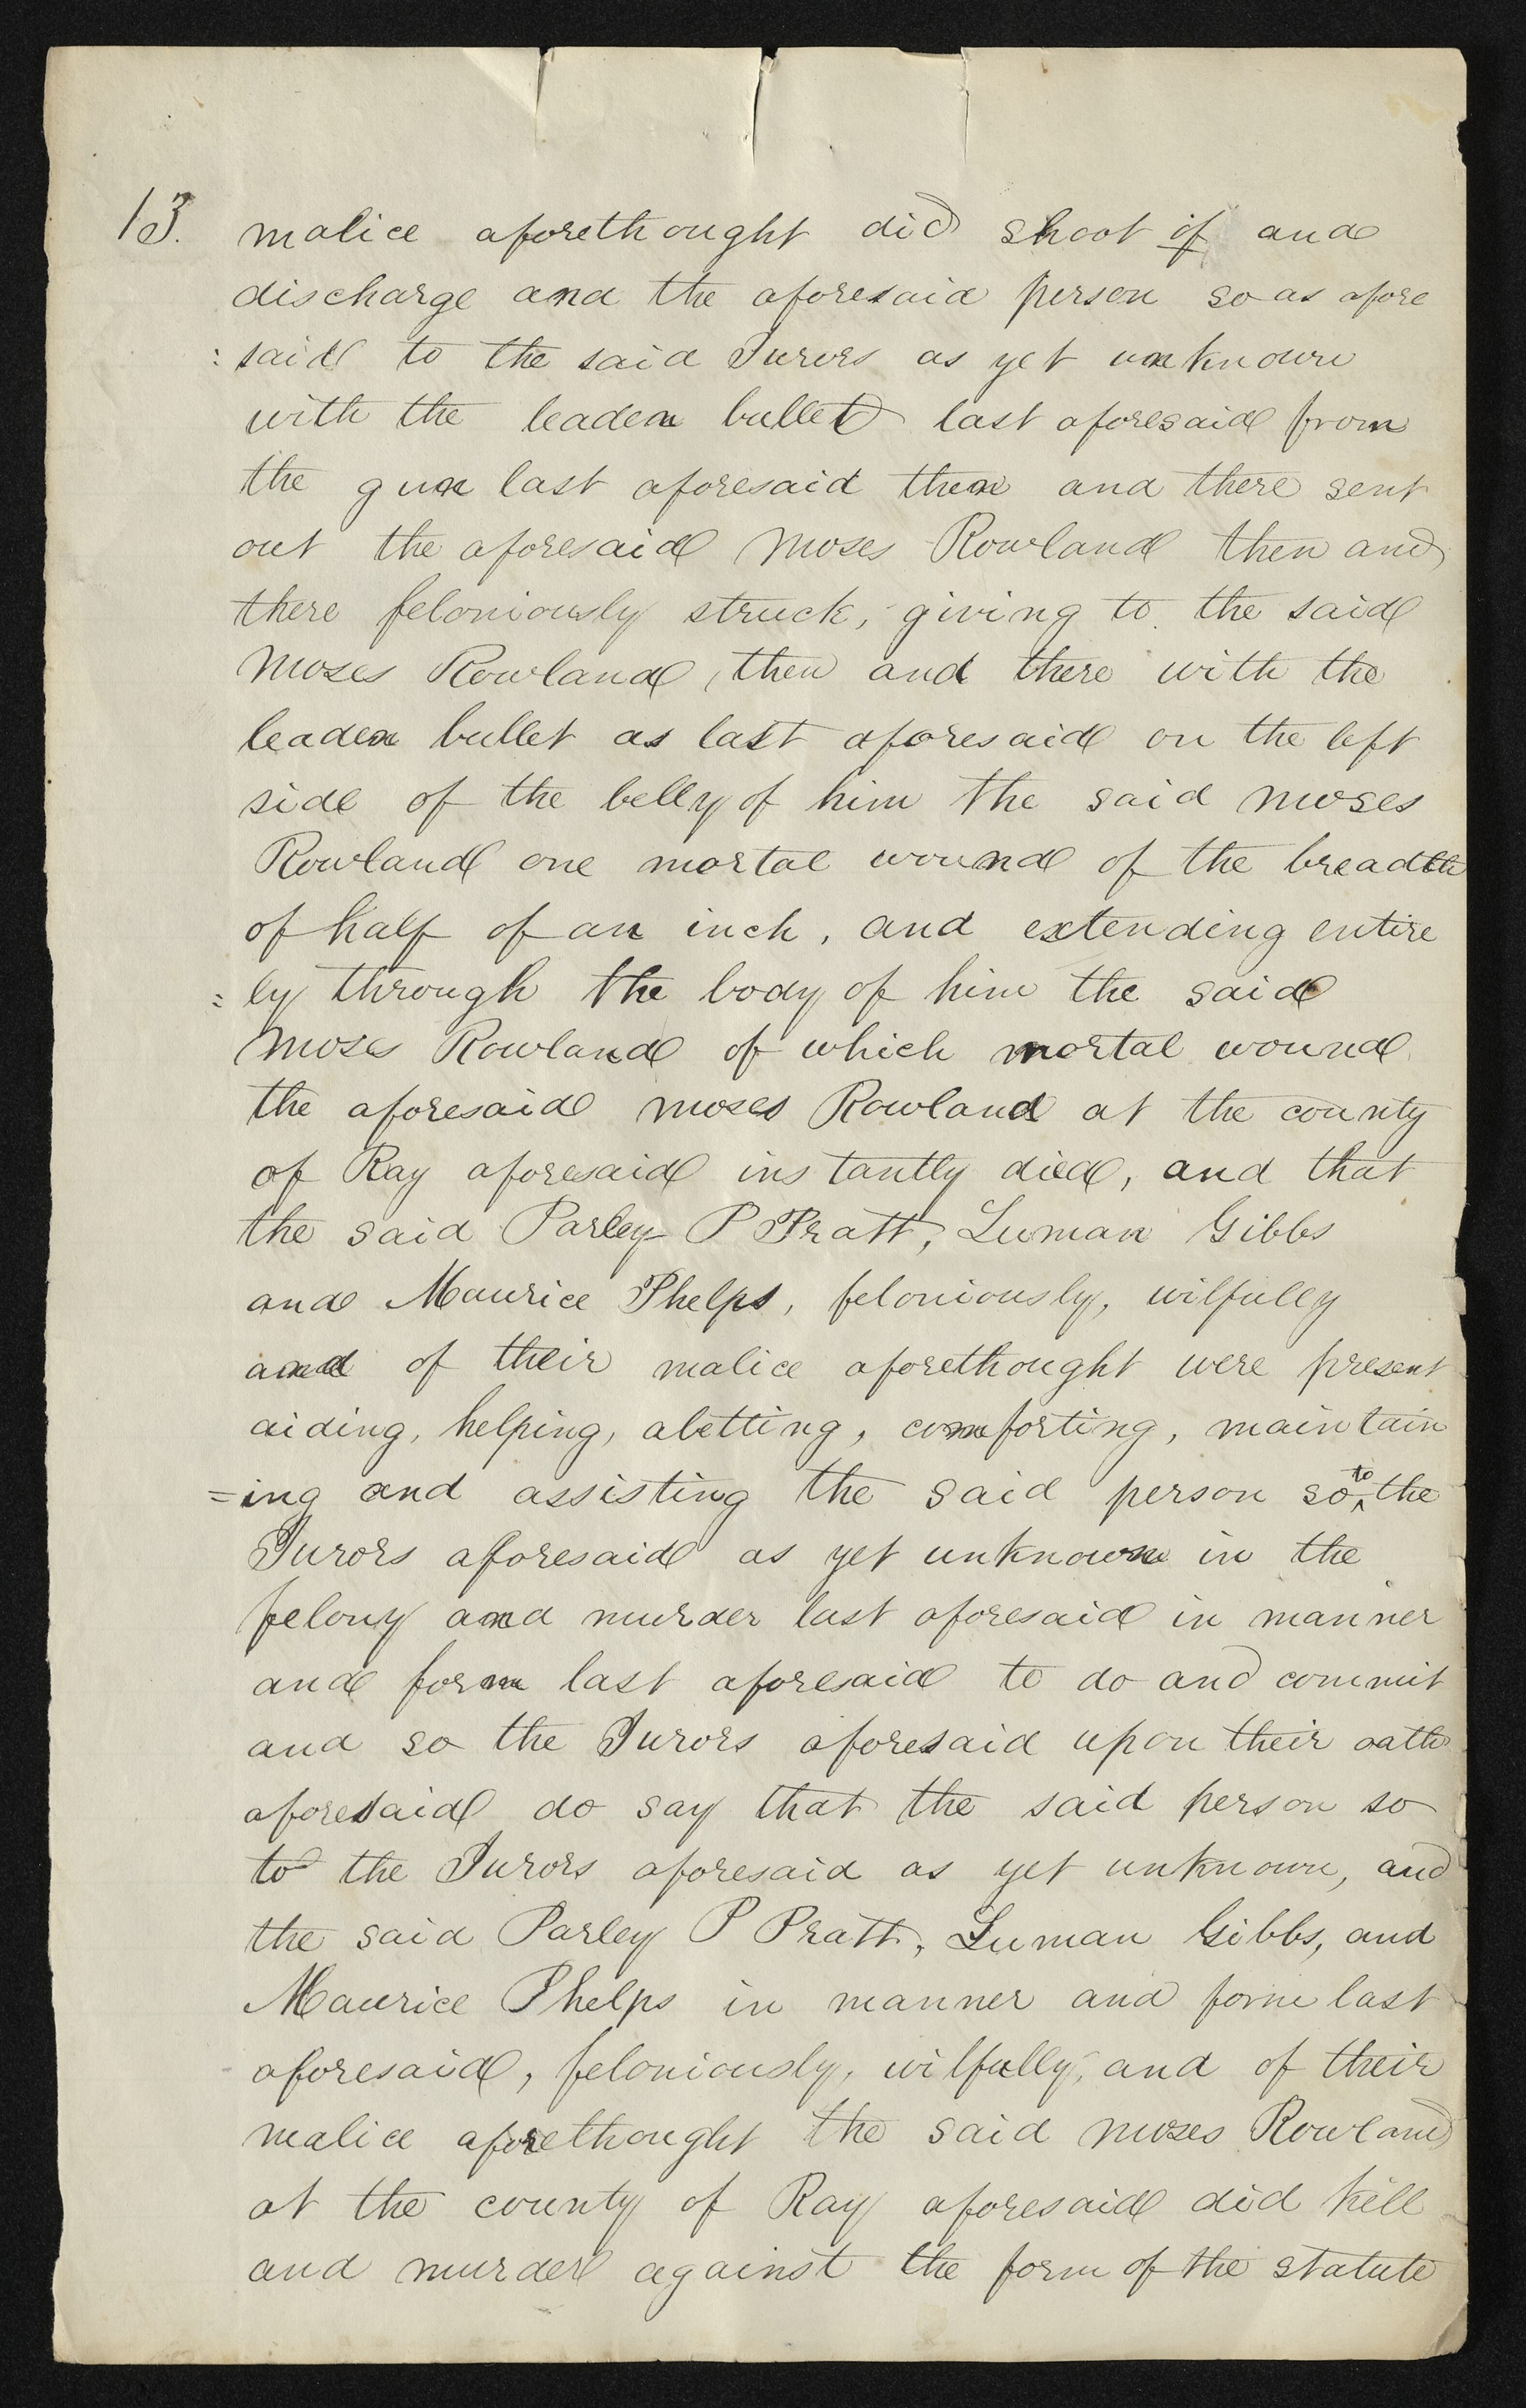 13. malice aforethought did shoot if and
discharge and the aforesaid person so as afore
: said to the said Jurors as yet unknown
with the leaden bullet last aforesaid from
the gun last aforesaid then and there sent
out the aforesaid Moses Rowland then and
there feloniously struck, giving to the said
Moses Rowland, then and there with the
leaden bullet as last aforesaid on the left
side of the belly of him the said Moses
Rowland one mortal wound of the breadth
of half of an inch, and extending entire
= ly through the body of him the said
Moses Rowland of which mortal wound
the aforesaid Moses Rowland at the county
of Ray aforesaid instantly died, and that
the said Parley P Pratt, Luman Gibbs
and Maurice Phelps, feloniously, wilfully
and of their malice aforethought were present
aiding, helping, abetting, comforting, maintain
=ing and assisting the said person so to the
Jurors aforesaid as yet unknown in the
felony and murder last aforesaid in manner
and form last aforesaid to do and commit
and so the Jurors aforesaid upon their oath
aforesaid do say that the said person so
to the Jurors aforesaid as yet unknown, and
the said Parley P Pratt, Luman Gibbs, and
Maurice Phelps in manner and form last
aforesaid, feloniously, wilfully, and of their
malice aforethought the said Moses Rowland
at the county of Ray aforesaid did kill
and murder against the form of the statute